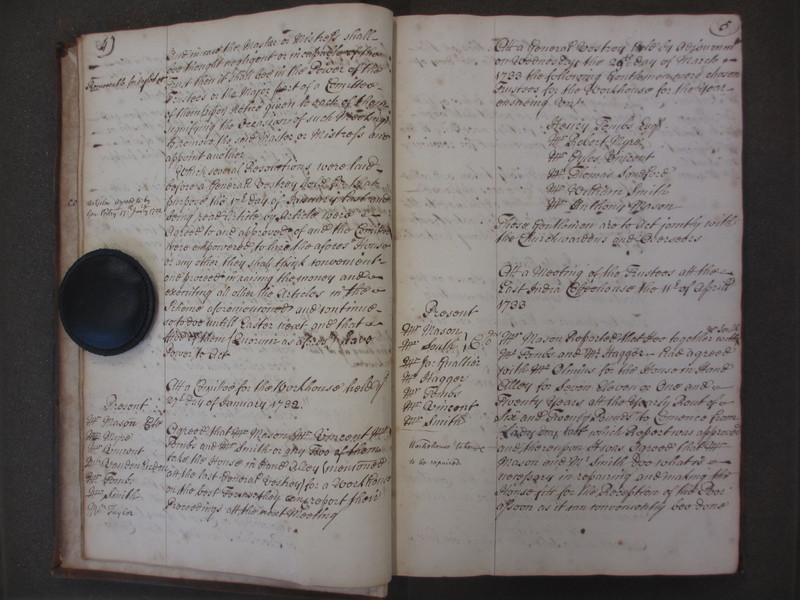 4)
And in case the Master or Mistress shall
bee thought negligent or incapable of their
Removeable for neglect &c
trust then it shall bee in the Power of the
Trustees or the Major part of a Comittee
of them (upon Notice given to each of them
signifying the Occasion of such Meeting)
to remove the said Master or Mistress and
appoint another
Which several Resolutions were laid
before a General Vestry held for that
purpose the 17th day of January last and
being read Article by Article were
Agreed to and approved of and the Comittee
were empowered to hire the afores House
or any other they shall think convenient
and proceed in raising the money and
executing all other the Articles in the
Scheme aforementioned and continue
so to doe untill Easter next and that
of them a Quorum as aforesd have
Power to Act
Att a Comittee for the Workhouse held ye
27 day of January 1732
Present
Mr Mason
Mr Myre
Mr Vincent
Mr Tombs
Mr Smith
Mr Taylor
Agreed that Mr Mason Mr Vincent Mr
Tombs and Mr Smith or any Two of them
take the House in Hand Alley (mentioned
att the last General Vestry) for a Workhouse
on the best Terms they can & report their
Proceedings att the next Meeting
5)
Att a General Vestry held by Adjournmt
on Wednesday the 28th day of March
1733 the following Gentlemen were chosen
Trustees for the Workhouse for the Year
ensueing Vizt
Henry Tombs Esqr
Mr Robert Myre
Mr Gyles Vincent
Mr Thomas Sandford
Mr William Smith
Mr Anthony Mason
These Gentlemen are to Act joyntly with
the Churchwardens and Overseers
Att a Meeting of the Trustees att the
East India Coffeehouse the 11th of April
1733
Present
Mr Mason
Mr South
Mr Ja: Guallier
Mr Hagger
Mr Tombs
Mr Vincent
Mr Smith
Mr Mason Reported that hee together with
Mr South
Mr Tombs and Mr Hagger had agreed
with Mr Olmius for the House in Hand
Alley for Seven Eleven or One and
Twenty years att the Yearly Rent of
Six and Twenty Pounds to Comence from
Lady day last which Report was approved
and thereupon itt was Agreed that Mr
Mason and Mr Smith doe what is
necessary in repairing and making the
Workhouse to be
to be repaired
House fitt for the Reception of the Poor
as soon as it can conveniently bee done